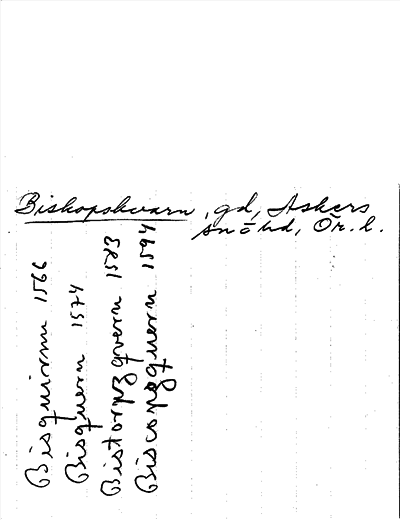 Biskopskvarn, gd, Askers
sn o hd, Ör. l.
Bisquirnn 1566
Bisquern 1574
Bistorpzqvern 1583
Biscopzquern 1594